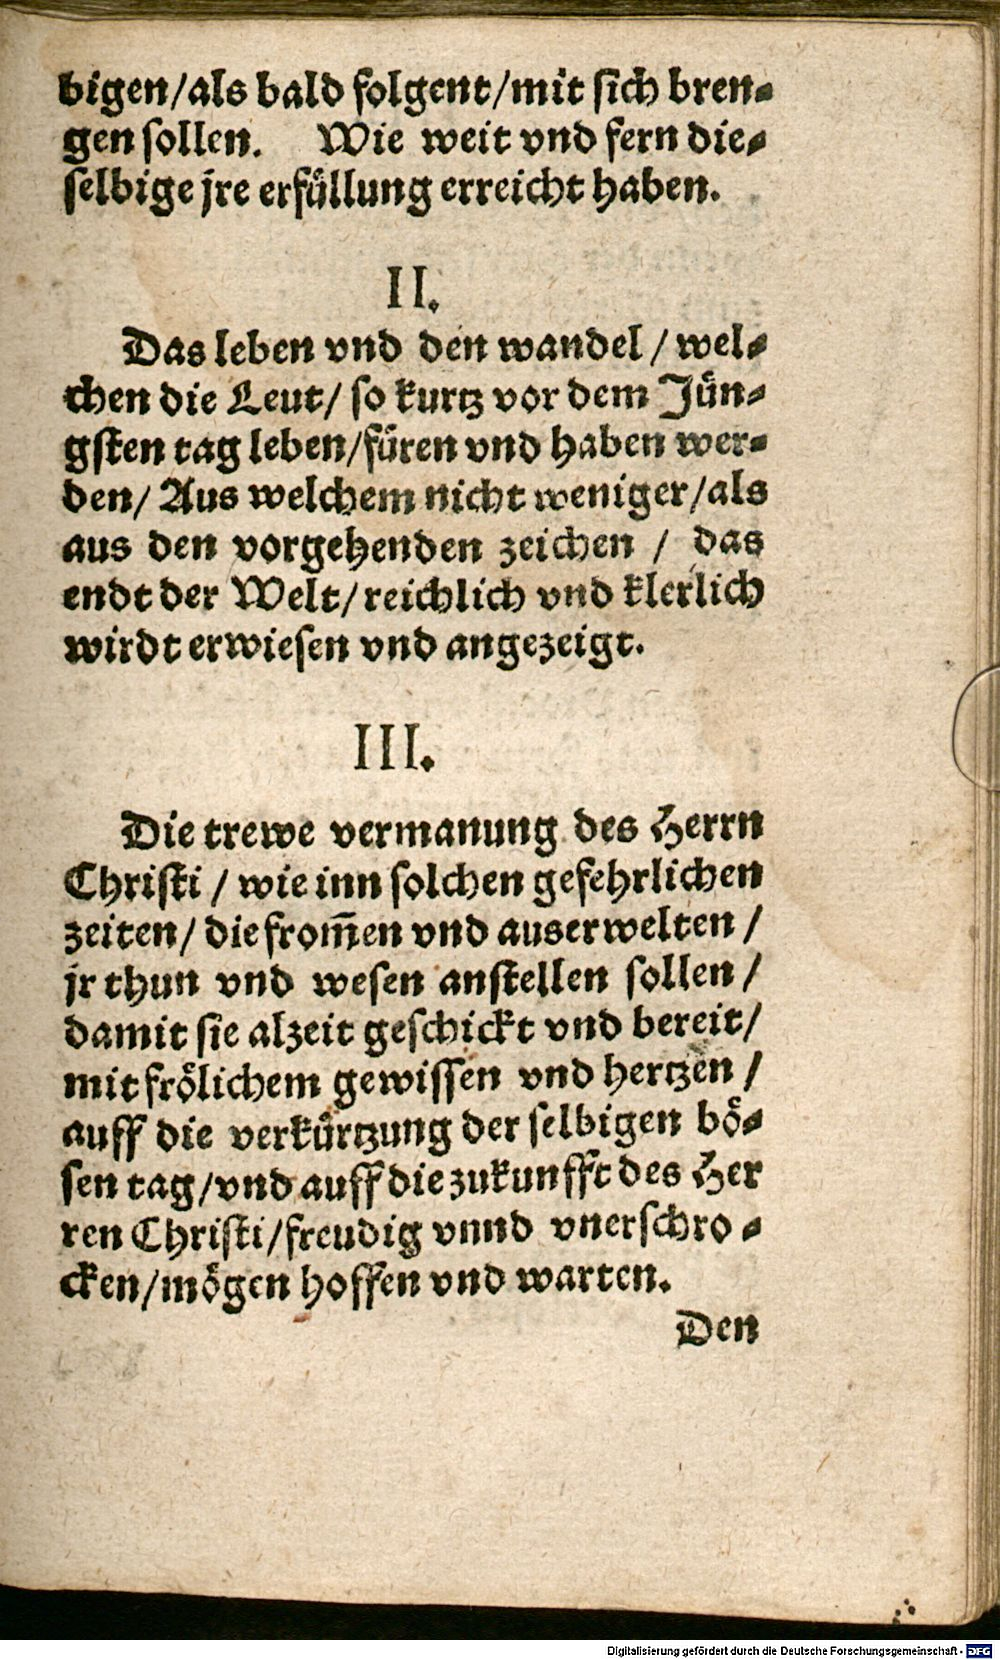 bigen/als bald folgent/mit sich bren-
gen sollen. Wie weit vnd fern die-
selbige jre erfüllung erreicht haben.
II.
Das leben vnd den wandel / wel-
chen die Leut/ so kurtz vor dem Jün-
gsten tag leben/füren vnd haben wer-
den/ Aus welchem nicht weniger/als
aus den vorgehenden zeichen / das
endt der Welt/reichlich vnd klerlich
wirdt erwiesen vnd angezeigt.
III.
Die trewe vermanung des Herrn
Christi / wie inn solchen gefehrlichen
zeiten/ die from̄en vnd auserwelten /
jr thun vnd wesen anstellen sollen /
damit sie alzeit geschickt vnd bereit/
mit frölichem gewissen vnd hertzen /
auff die verkürtzung der selbigen bö-
sen tag/vnd auff die zukunfft des Her
ren Christi/freudig vnnd vnerschro-
cken/mögen hoffen vnd warten.
Den
Digitalisierung gefördert durch die Deutsche Forschungsgemeinschaft - DFG